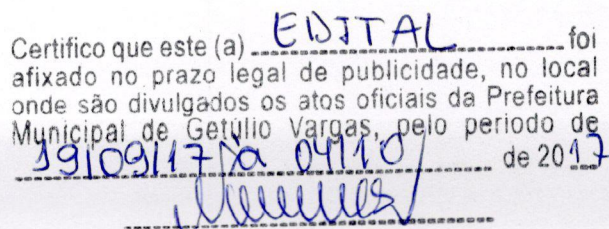 Certifico que este (a) EDITAL foi
afixado no prazo legal de publicidade, no local
onde são divulgados os atos oficiais da Prefeitura
Municipal de Getúlio Vargas, pelo periodo de
19/09/17 à 04/10/ de 2017